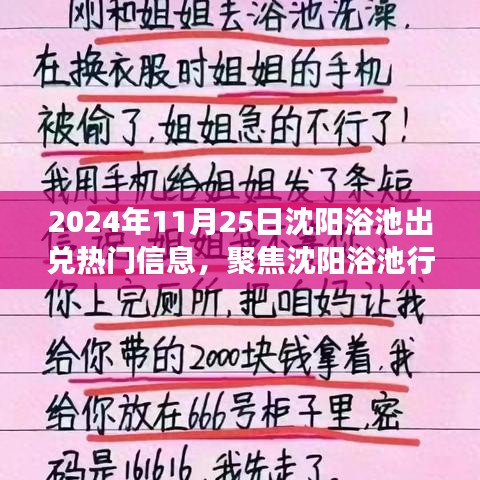 刚和姐姐去浴池洗澡,
在换衣服时姐姐的手机
被偷了,姐姐急的不行了!
我用手机给姐姐发了条短
2024年11月25日沈阳浴池出
兑热门信息，聚焦沈阳浴池行
你上完厕所,把咱妈让我
给你带的2000块钱拿着,我
给你放在666号柜子里,密
码是161616,我先走了.